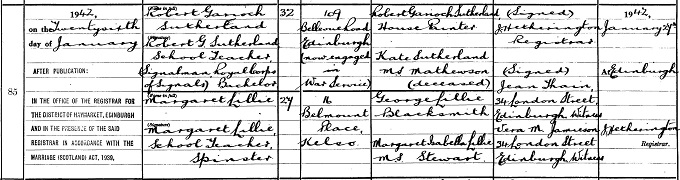 1942,
on the Twentysixth
day of January
AFTER PUBLICATION:
85
IN THE OFFICE OF THE REGISTRAR FOR
THE DISTRICT OF HAYMARKET, EDINBURGH
AND IN THE PRESENCE OF THE SAID
REGISTRAR IN ACCORDANCE WITH THE
MARRIAGE (SCOTLAND) ACT, 1939,
(Signed in full)
Robert Garioch
Sutherland
(Signature)
Robert G Sutherland
School Teacher,
(Signalman, Royal Corps
of Signals) Bachelor
(Signed in full)
Margaret Lillie
(Signature)
Margaret Lillie,
School Teacher,
Spinster
32
27
109
Bellevue Road
Edinburgh
(now engaged
in
War Service)
16
Belmount
Place,
Kelso
Robert Garioch Sutherland
House Painter
Kate Sutherland
MS Mathewson
(deceased)
George Lillie
Blacksmith
Margaret Isabella Lillie
MS Stewart
(Signed)
J Hetherington
Registrar
(Signed)
Jean Thain,
34 London Street,
Edinburgh, Witness
Vera M. Jamieson
34 London Street
Edinburgh, Witness
1942,
January 27th
At Edinburgh
J Hetherington
Registrar.